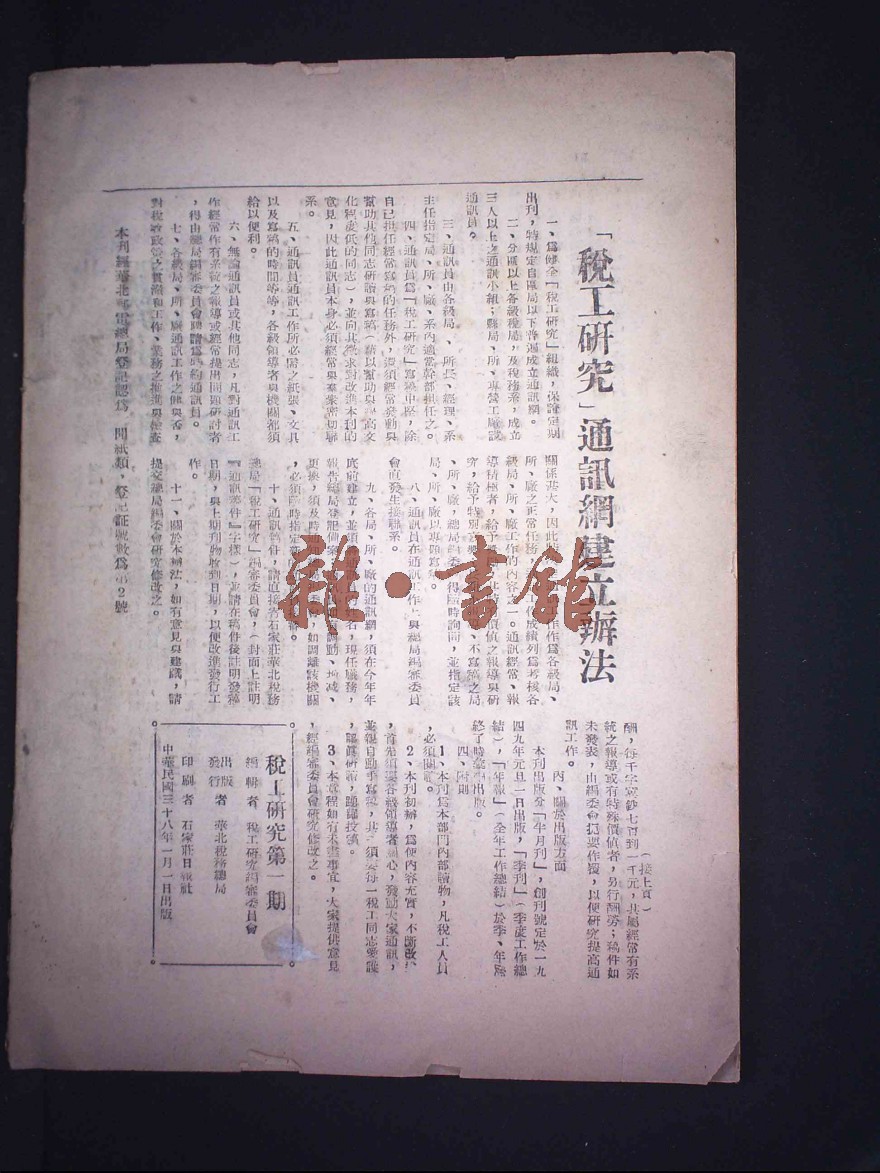 「稅工研究」通訊網建立辦法
一、爲健全「稅工研究」組織，保證定期
出刊，特規定自區局以下普遍成立通訊網。
二、分區以上各級稅局，及稅務系，成立
三人以上之通訊小組；縣局、所、專營工廠設
通訊員。
三、通訊員由各級局、所長、經理、系
主任指定局、所、廠、系內適當幹部担任之。
四、通訊員爲「稅工研究」寫稿中堅，除
自己担任經常寫稿的任務外，還須經常發動與
幫助其他同志研讀與寫稿（藉以幫助與提高文
化程度低的同志），並向其徵求對改進本刊的
意見，因此通訊員本身必須經常與羣衆密切聯
系。
五、通訊員通訊工作所必需之紙張、文具
以及寫稿的時間等等，各級領導者與機關都須
給以便利。
六、無論通訊員或其他同志，凡對通訊工
作經常作有系統之報導或經常提出問題研討者
，得由總局編審委員會聘請爲特約通訊員。
七、各級局、所、廠通訊工作之健與否，
對稅收政策之貫徹和工作、業務之推進與檢查
關係甚大，因此
工作作爲各級局、
所、廠之正常任務，
作成績列爲考核各
級局、所、廠工作的內容之一。通訊經常、報
導積極者，給予
價值之報導與研
究，給予特別
、不寫稿之局
、所、廠，總局
得隨時詢問，並指定該
局、所、廠以專題寫
八、通訊員在通訊工作上與總局編審委員
會直發生接聯系。
九、各局、所、廠的通訊網，須在今年年
底前建立，並須
名，現任職務，
報告總局登記備案
調動、增減、
更換，須及時
如調離該機關
，必須同時指定
十、通訊稿件，請直接寄石家莊華北稅務
總局「稅工研究」編審委員會，（封面上註明
『通訊稿件』字樣），並請在稿件後註明發稿
日期，與上期刊物收到日期，以便改進發行工
作。
十一、關於本辦法，如有意見與建議，請
提交總局編委會研究修改之。
本刊經華北郵電總局登記認爲
聞紙類，登記証號數爲第2號
（接上頁）
酬，每千字寃鈔七百到一千元，其屬經常有系
統之報導或有特殊價值者，另行酬勞；稿件如
未發表，由編委會扼要作覆，以便研究提高通
訊工作。
丙、關於出版方面
本刊出版分「半月刊」，創刊號定於一九
四九年元旦一日出版，「季刊」（季度工作總
結），「年報」（全年工作總結）於季、年終
終了時 出版。
四、附則
1、本刊爲本部門內部讀物，凡稅工人員
，必須閱讀。
2、本刊初辦，爲使內容充實，不斷改
，首先須要各級領導者關心，發動大家通訊，
並親自動手寫稿，其 須要每一稅工同志愛護
，踴躍研讀，踴躍投稿。
3、本章程如有未盡事宜，大家提供意見
，經編審委員會研究修改之。
稅工研究第一期
編輯者 稅工研究編審委員會
出版者
發行者 華北稅務總局
印刷者 石家莊日報社
中華民國三十八年一月一日出版
雜·書館